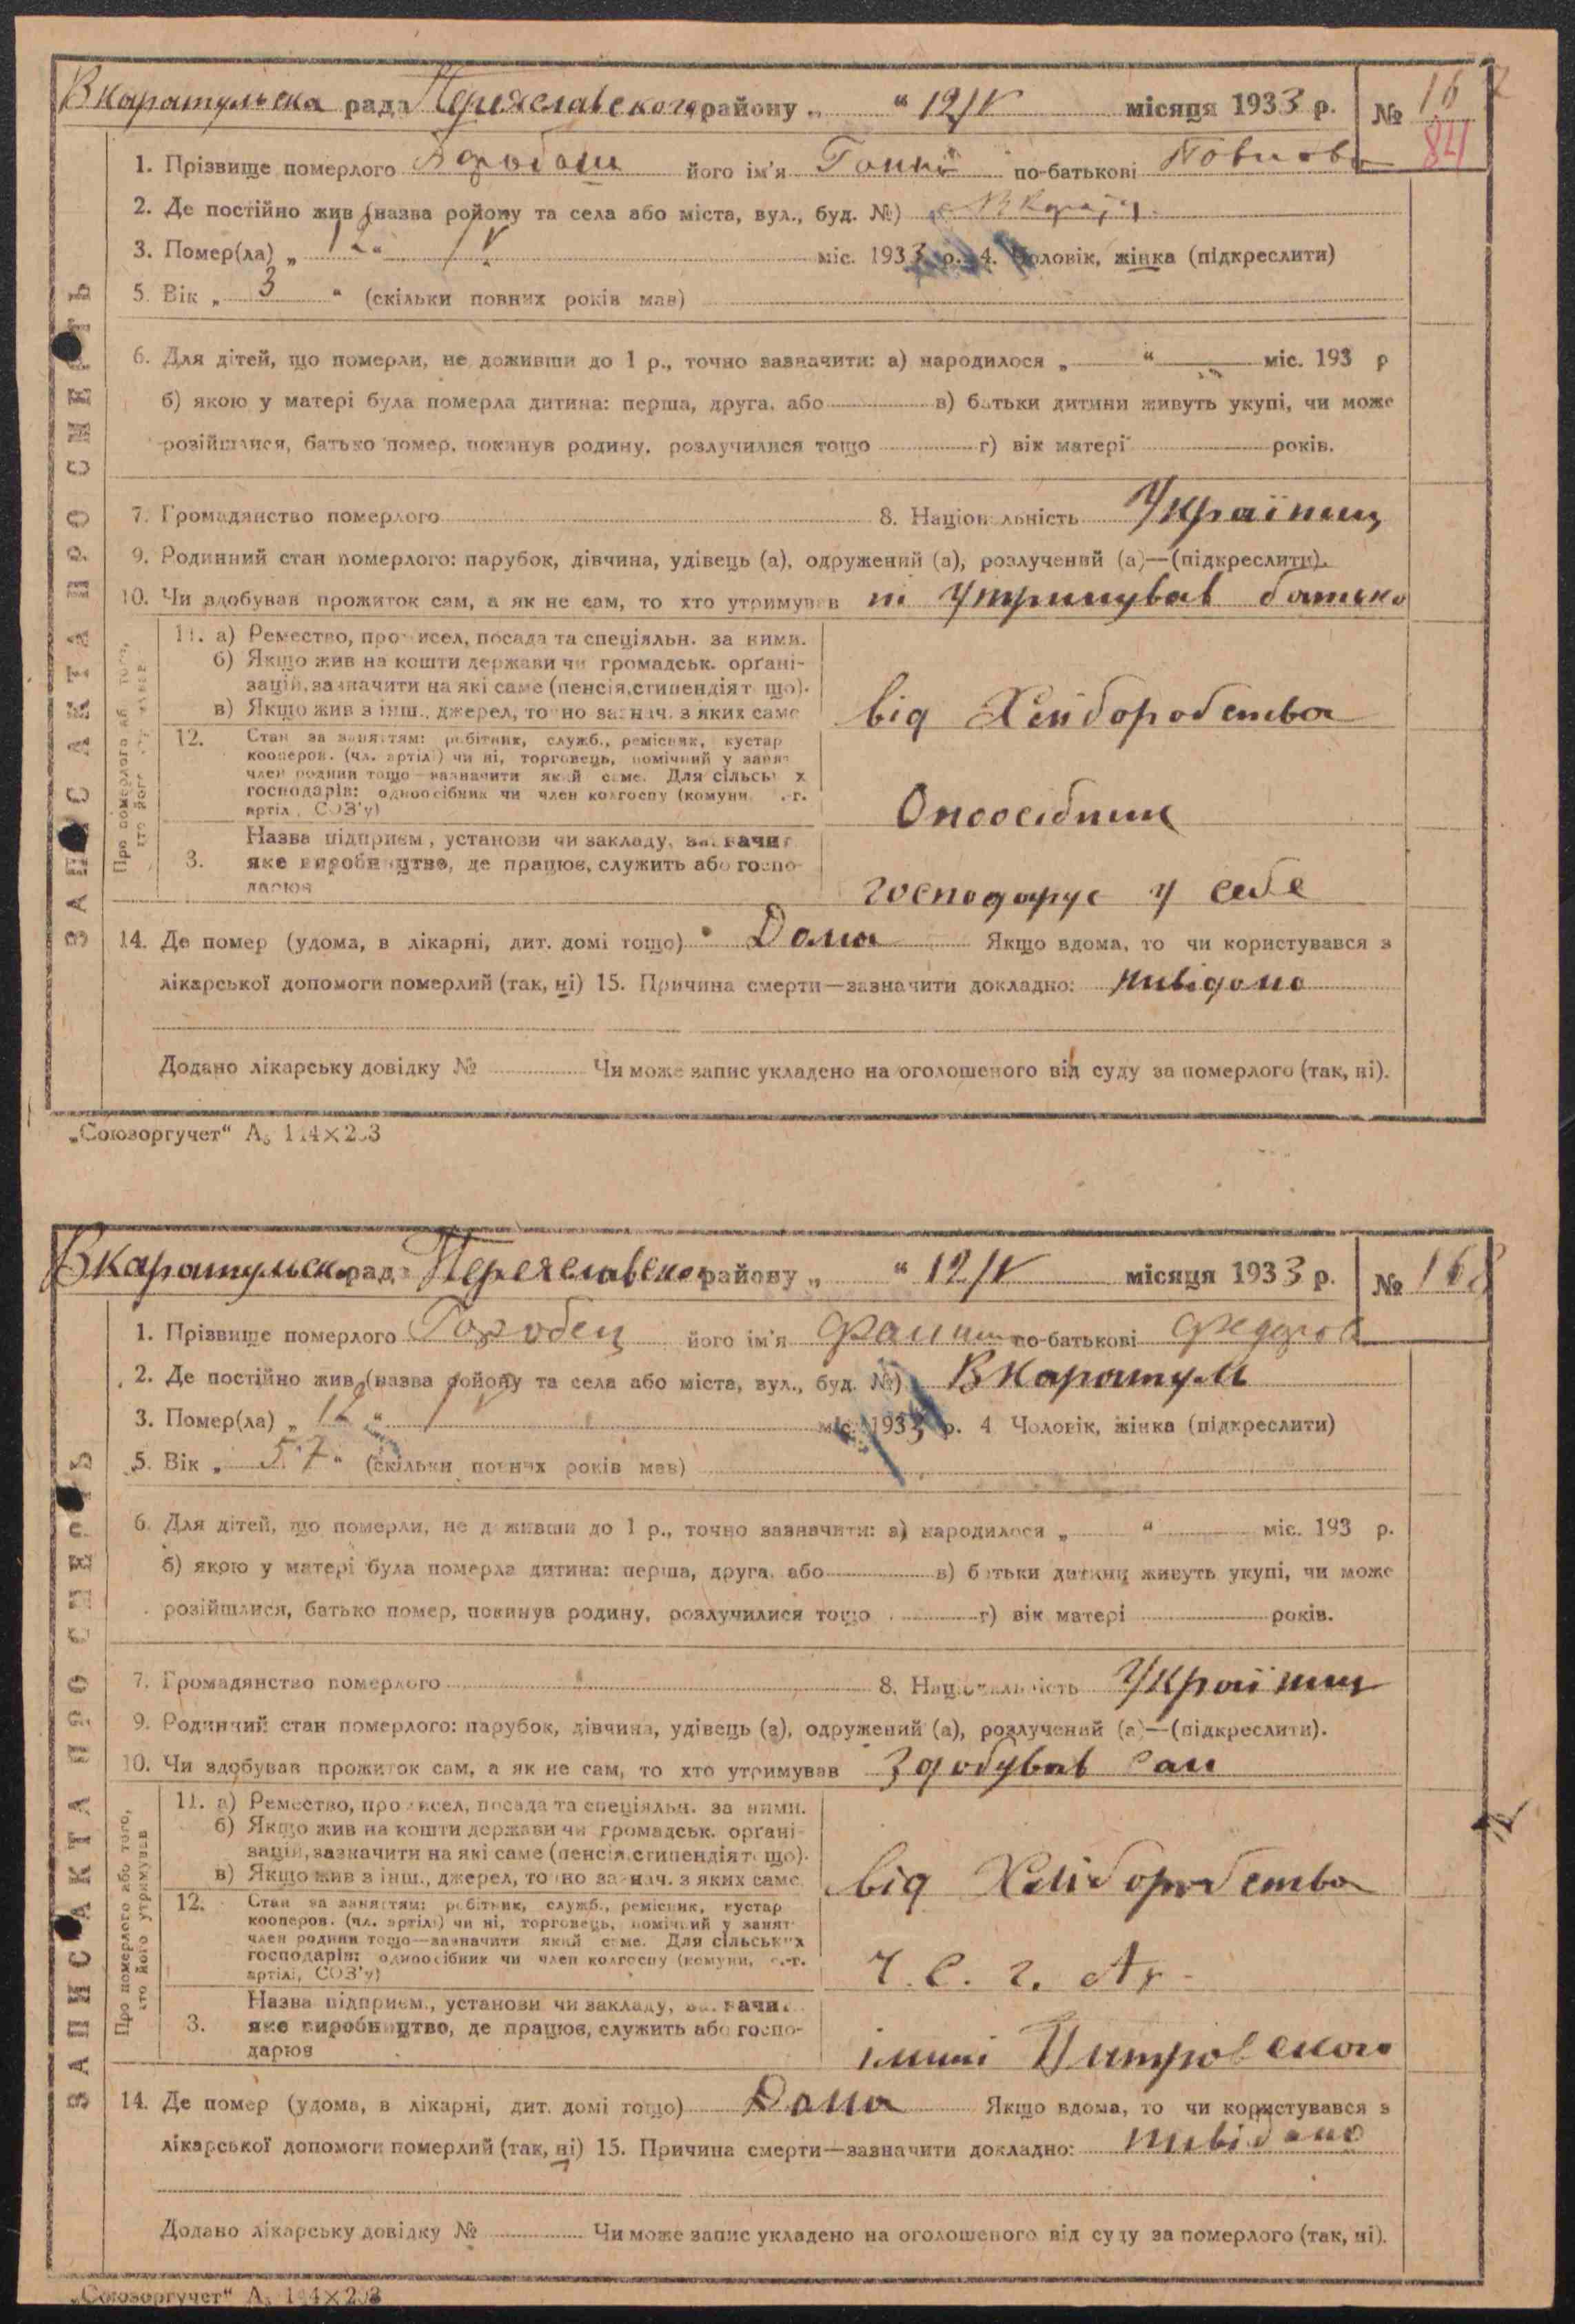 Вкаратульска рада Переяславского району „ “ 12/V місяця 1933 р. № 167
84
1. Прізвище померлого його ім'я Ганна по-батькові
2. Де постійно жив (назва району та села або міста, вул., буд. №)
3. Помер(ла) „ 12 “ V міс. 1933 р. 4. Чоловік, жінка (підкреслити)
5. Вік „ 3 “ (скільки повних років мав)
6. Для дітей, що померли, не доживши до 1 р., точно зазначити: а) народилося „ “ міс. 193 р
б) якою у матері була померла дитина: перша, друга, або в) батьки дитини живуть укупі, чи може
розійшлися, батько помер, покинув родину, розлучилися тощо г) вік матері років.
7. Громадянство померлого 8. Національність Українц
9. Родинний стан померлого: парубок, дівчина, удівець (а), одружений (а), розлучений (а)—(підкреслити).
10. Чи здобував прожиток сам, а як не сам, то хто утримував ні утримував батько
Про померлого або того, хто його утримував
11. а) Ремество, промисел, посада та спеціяльн. за ними.
б) Якщо жив на кошти держави чи громадськ. орґані-
зацій, зазначити на які саме (пенсія, стипендія т що).
в) Якщо жив з інш., джерел, точно зазнач. з яких саме
від Хлібороботва
12. Стан за заняттям: робітник, служб., ремісник, кустар
кооперов. (чл. артілі) чи ні, торговець, помічний у занят
член родини тощо—зазначити який саме. Для сільськ х
господарів: одноосібник чи член колгоспу (комуни, с.-г.
артіл , СОЗ'у)
Оноосібник
3. Назва підприєм , установи чи закладу, зазначит
яке виробництво, де працює, служить або госпо-
дарює
господарує у себе
14. Де помер (удома, в лікарні, дит. домі тощо) Дома Якщо вдома, то чи користувався з
лікарської допомоги померлий (так, ні) 15. Причина смерти—зазначити докладно: нивідомо
Додано лікарську довідку № Чи може запис укладено на оголошеного від суду за померлого (так, ні).
ЗАПИС АКТА ПРО СМЕРТЬ
„Союзоргучет“ А₅ 144×203
Вкаратульска рада Переяславского району „ “ 12/V місяця 1933 р. № 168
1. Прізвище померлого Горобец його ім'я по-батькові Федоров
2. Де постійно жив (назва району та села або міста, вул., буд. №) ВКаратул
3. Помер(ла) „ 12 “ V міс. 1933 р. 4 Чоловік, жінка (підкреслити)
5. Вік „ 57 “ (скільки повних років мав)
6. Для дітей, що померли, не доживши до 1 р., точно зазначити: а) народилося „ “ міс. 193 р.
б) якою у матері була померла дитина: перша, друга, або в) батьки дитини живуть укупі, чи може
розійшлися, батько помер, покинув родину, розлучилися тощо г) вік матері років.
7. Громадянство померлого 8. Національність Українц
9. Родинний стан померлого: парубок, дівчина, удівець (а), одружений (а), розлучений (а)—(підкреслити).
10. Чи здобував прожиток сам, а як не сам, то хто утримував Здобував сам
Про померлого або того, хто його утримував
11. а) Ремество, промисел, посада та спеціяльн. за ними.
б) Якщо жив на кошти держави чи громадськ. орґані-
зацій, зазначити на які саме (пенсія, стипендія т що).
в) Якщо жив з інш., джерел, точно зазнач. з яких саме
від Хлібороботва
12. Стан за заняттям: робітник, служб., ремісник, кустар
кооперов. (чл. артілі) чи ні, торговець, помічний у занят
член родини тощо—зазначити який саме. Для сільських
господарів: одноосібник чи член колгоспу (комуни, с.-г.
артілі, СОЗ'у)
Ч. С. г. Ар
3. Назва підприєм., установи чи закладу, зазначи
яке виробництво, де працює, служить або госпо-
дарює
імині Питровского
14. Де помер (удома, в лікарні, дит. домі тощо) Дома Якщо вдома, то чи користувався з
лікарської допомоги померлий (так, ні) 15. Причина смерти—зазначити докладно: нивідомо
Додано лікарську довідку № Чи може запис укладено на оголошеного від суду за померлого (так, ні).
ЗАПИС АКТА ПРО СМЕРТЬ
„Союзоргучет“ А₅ 144×203